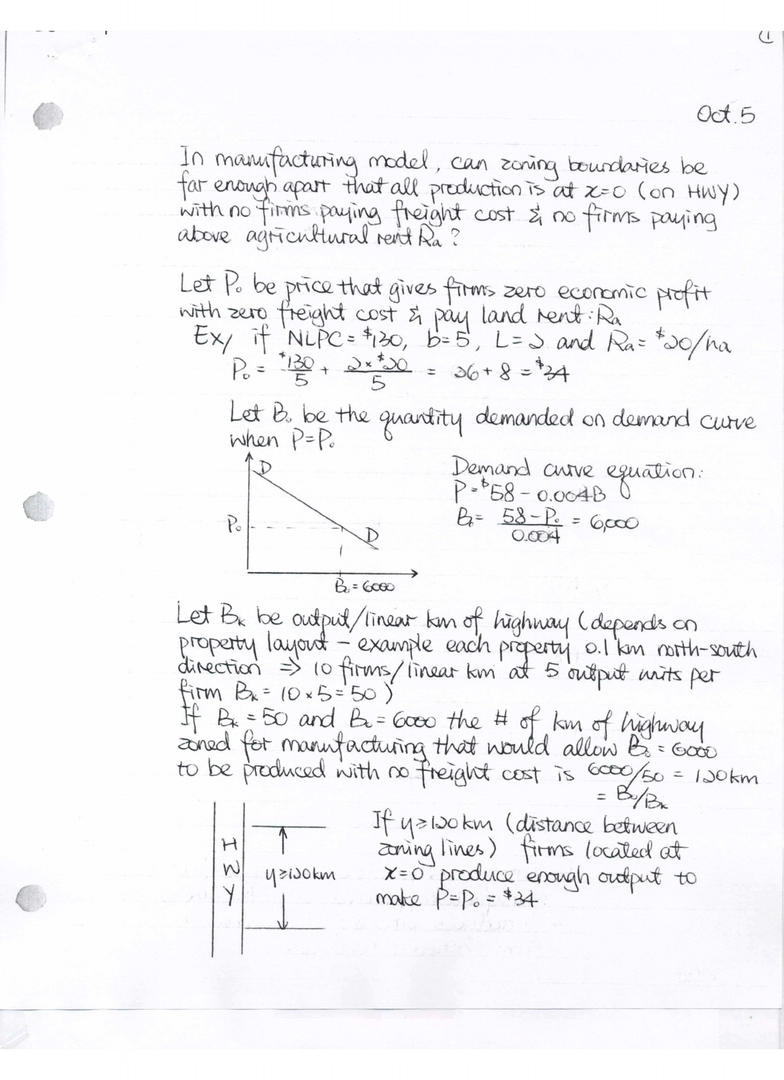 1
Oct. 5
In manufacturing model, can zoning boundaries be
far enough apart that all production is at x=0 (on HWY)
with no firms paying freight cost & no firms paying
above agricultural rent Ra?
Let P₀ be price that gives firms zero economic profit
with zero freight cost & pay land rent: Ra
Ex/ if NLPC = $130, b=5, L=2 and Ra = $20/ha
P₀ = $130/5 + 2×$20/5 = 26+8 = $34
Let B₀ be the quantity demanded on demand curve
when P=P₀
D
P₀
D
B₀ = 6000
Demand curve equation:
P = $58 - 0.004B
B₀ = 58-P₀/0.004 = 6,000
Let Bₖ be output/linear km of highway (depends on
property layout - example each property 0.1 km north-south
direction ⇒ 10 firms/linear km at 5 output units per
firm Bₖ = 10×5 = 50)
If Bₖ = 50 and B₀ = 6000 the # of km of highway
zoned for manufacturing that would allow B₀ = 6000
to be produced with no freight cost is 6000/50 = 120km
= B₀/Bₖ
HWY
y≥120km
If y≥120km (distance between
zoning lines) firms located at
x=0 produce enough output to
make P=P₀ = $34